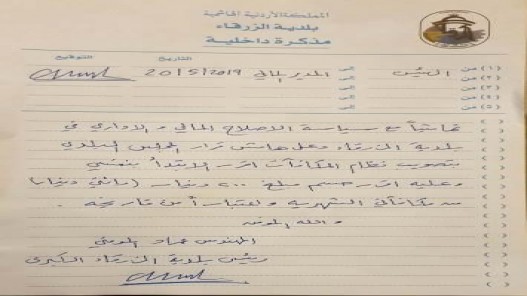 المملكة الأردنية الهاشمية
بلدية الزرقاء
مذكرة داخلية
التاريخ التوقيع
(١) من الرئيس إلى المدير المالي 20/5/2019
(٢) من إلى
(٣) من إلى
(٤) من إلى
(٥) من إلى
تماشياً مع سياسة الاصلاح المالي و الاداري في
بلدية الزرقاء وعلى هامش قرار المجلس البلدي
بتصويب نظام المكافآت اقرر الابتداء بنفسي
وعليه اقرر حسم مبلغ ٢٠٠ دينار (مائتي دينار)
من مكافأتي الشهرية واعتباراً من تاريخه .
و الله الموفق
المهندس عماد المومني
رئيس بلدية الزرقاء الكبرى